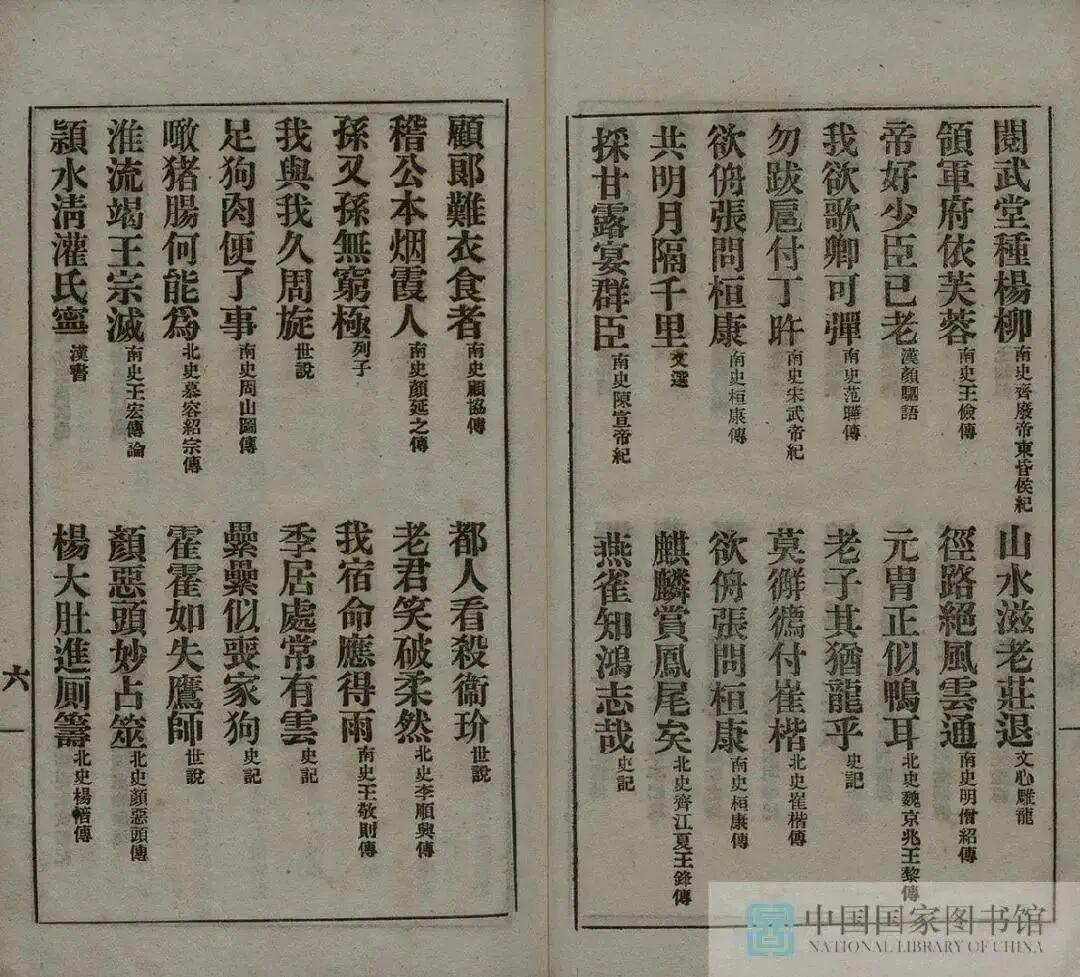 閱武堂種楊柳 南史齊廢帝東昏侯紀
山水滋老莊退 文心雕龍
領軍府依芙蓉 南史王儉傳
徑路絕風雲通 南史明僧紹傳
帝好少臣已老 漢顏駟語
元冑正似鴨耳 北史魏京兆王黎傳
我欲歌卿可彈 南史范曄傳
老子其猶龍乎 史記
勿跋扈付丁旿 南史宋武帝紀
莫獬㺔付崔楷 北史崔楷傳
欲侜張問桓康 南史桓康傳
欲侜張問桓康 南史桓康傳
共明月隔千里 文選
麒麟賞鳳尾矣 北史齊江夏王鋒傳
採甘露宴群臣 南史陳宣帝紀
燕雀知鴻志哉 史記
顧郎難衣食者 南史顧協傳
都人看殺衞玠 世說
稽公本烟霞人 南史顏延之傳
老君笑破柔然 北史李順興傳
孫又孫無窮極 列子
我宿命應得雨 南史王敬則傳
我與我久周旋 世說
季居處常有雲 史記
足狗肉便了事 南史周山圖傳
纍纍似喪家狗 史記
噉猪腸何能為 北史慕容紹宗傳
霍霍如失鷹師 世說
淮流竭王宗滅 南史王宏傳論
顏惡頭妙占筮 北史顏惡頭傳
潁水淸灌氏寧 漢書
楊大肚進厠籌 北史楊愔傳
六
中国国家图书馆
NATIONAL LIBRARY OF CHINA